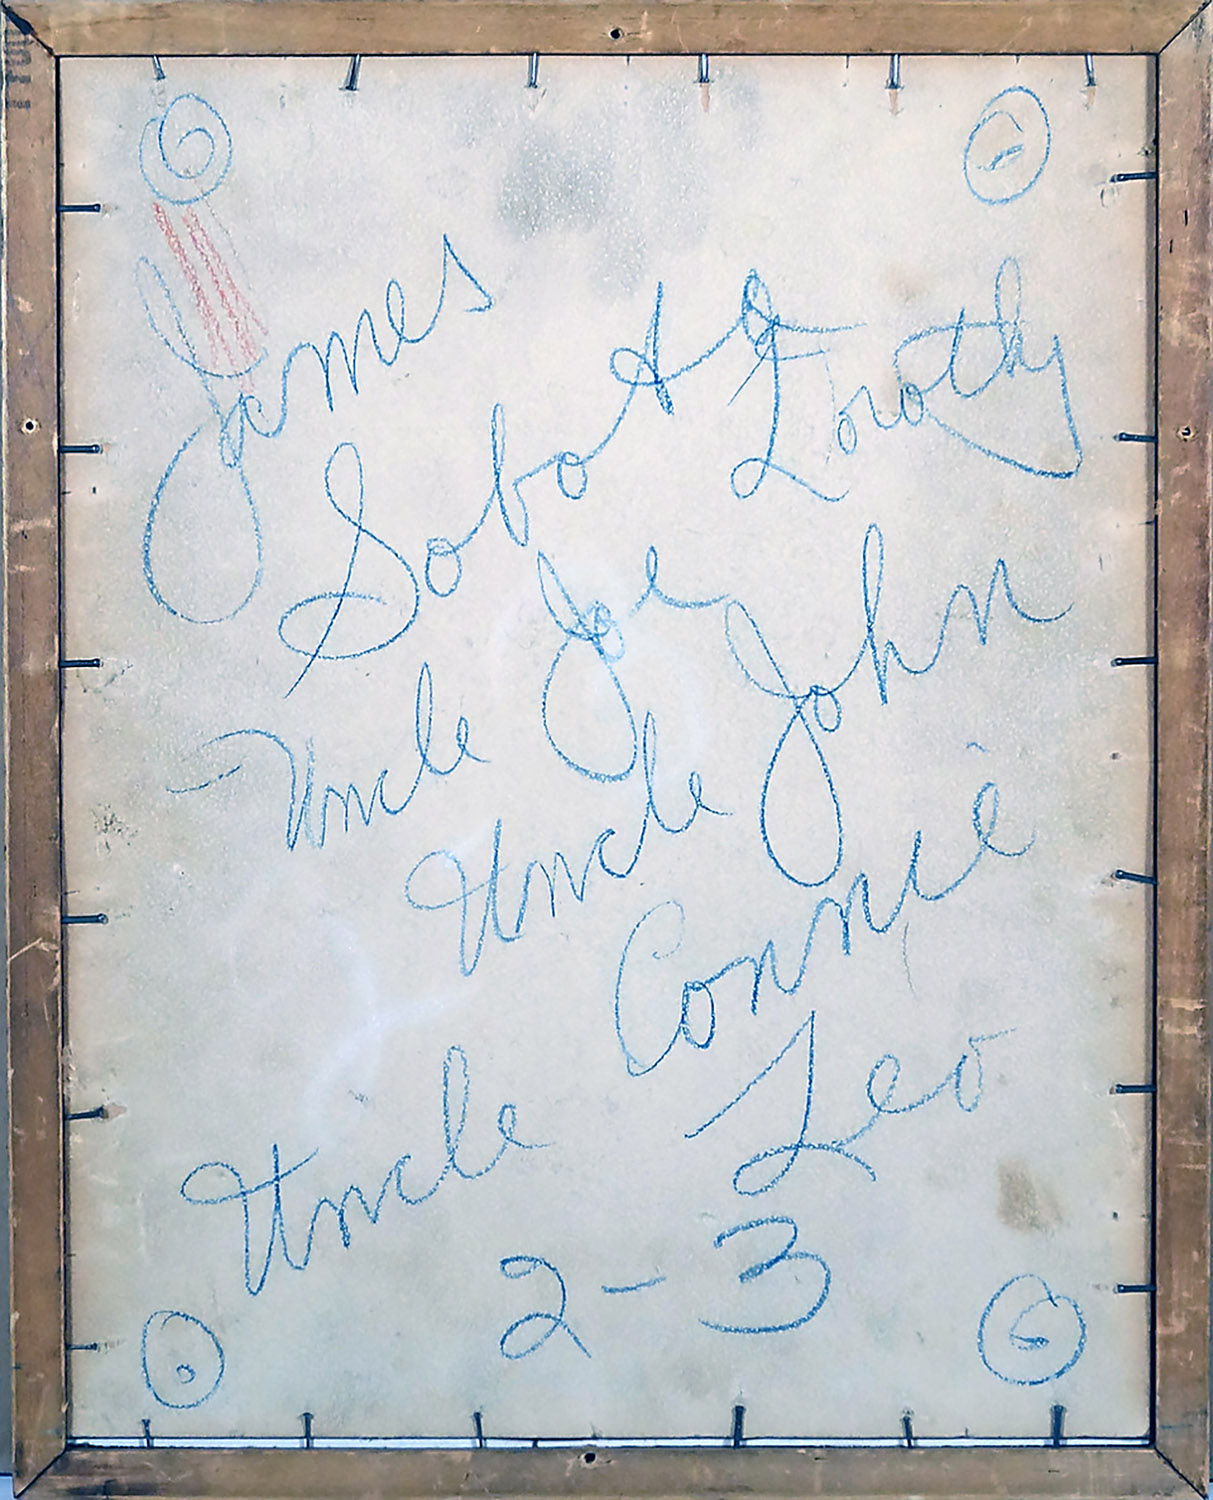 James
Sobota
Dorothy
Uncle Joe
Uncle John
Connie
Uncle Leo
2-3